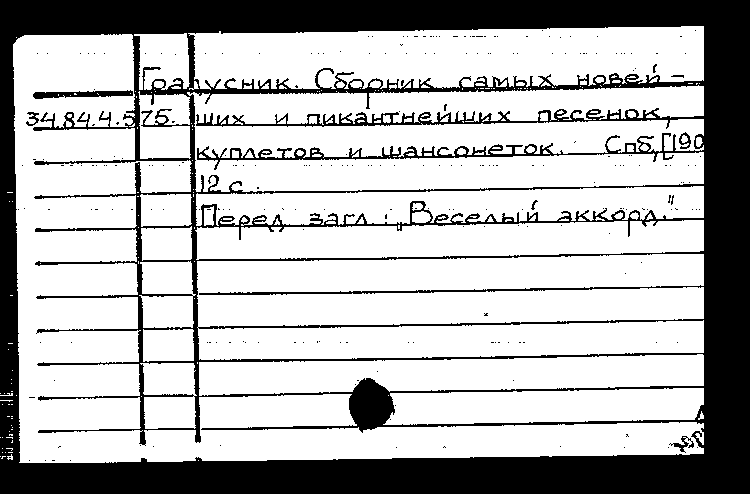 Градусник. Сборник самых новей-
34.84.4.575. ших и пикантнейших песенок,
куплетов и шансонеток. Спб, [190
12 с.
Перед загл.: „Веселый аккорд."